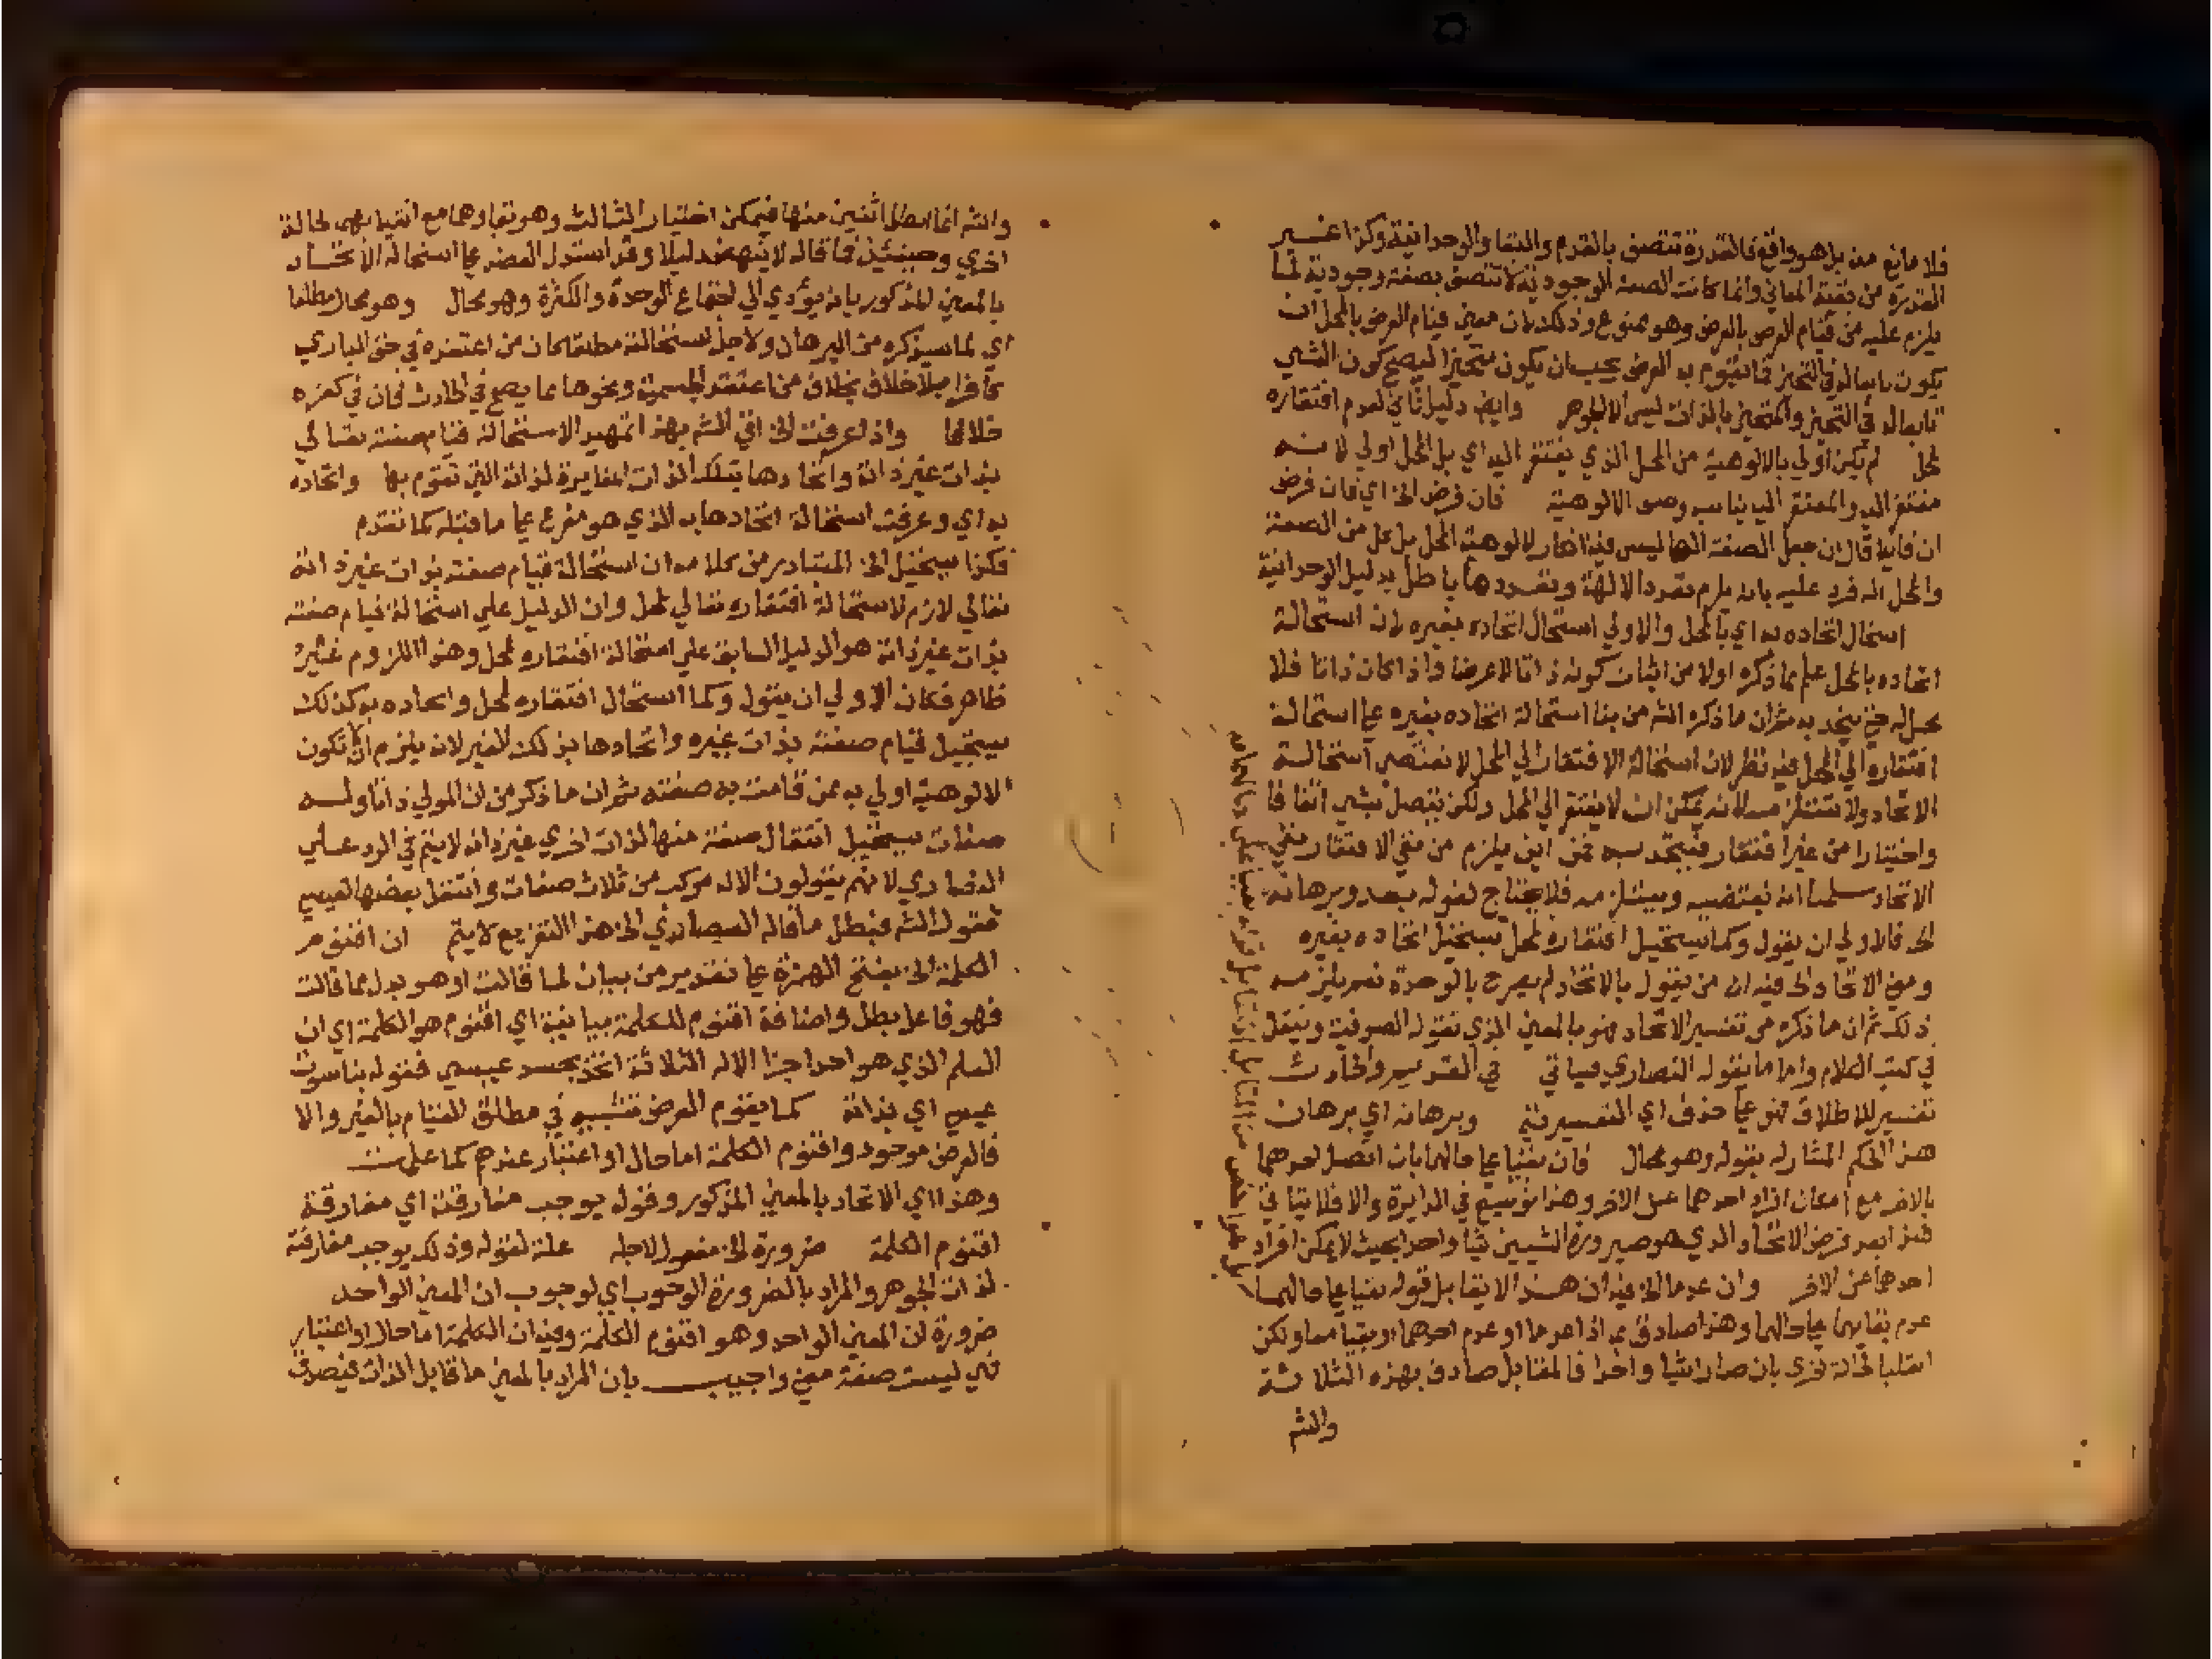 فلا مانع منه بل هو واقع فالقدرة تتصف بالقدم والبقا والوحدانية وكذا غير
القدرة من بقية المعاني وانما كانت الصفة الوجودية لا تتصف بصفة وجودية لما
يلزم عليه من قيام العرض بالعرض وهو ممنوع وذلك لان معنى قيام العرض بالمحل ان
يكون تابعا له في التحيز فما يقوم به العرض يجب ان يكون متحيزا ليصح كون الشي
تابعا له في التحيز والمتحيز بالذات ليس الا الجوهر وايضا دليل ثاني لعدم افتقاره
لمحل لم يكن اولي بالالوهية من المحل الذي يفتقر اليه اي بل المحل اولي لانه
مفتقر اليه والمفتقر اليه يناسبه وصف الالوهية فان فرض الخ اي فان فرض
ان قايلا قال ان جعل الصفة الها ليس فيه انكار لالوهية المحل بل كل من الصفة
والمحل اله فرد عليه بانه يلزم تعدد الالهة وتعددها باطل بدليل الوحدانية
استحال اتحاده به اي بالمحل والاولي استحال اتحاده بغيره لان استحالة
اتحاده بالمحل علم مما ذكره اولا من اثبات كونه ذاتا لا عرضا واذا كان ذاتا فلا
محل له حتى يتحد به ثم ان ما ذكره الشم من بنا استحالة اتحاده بغيره على استحالة
افتقاره الي المحل فيه نظر لان استحالة الافتقار الي المحل لا تقتضي استحالة
الاتحاد ولا تستلزمه لانه يمكن ان لا يفتقر الي المحل ولكن يتصل بشي اتفاقا
واختيارا من غير افتقار فيتحد به فمن اين يلزم من نفي الافتقار نفي
الاتحاد سلمنا انه يقتضيه ويستلزمه فلا يحتاج لقوله بعد وبرهانه
الخ فالاولي ان يقول وكما يستحيل افتقاره لمحل يستحيل اتحاده بغيره
ومعنى الاتحاد الخ فيه ان من يقول بالاتحاد لم يصرح بالوحدة نعم يلزمه
ذلك ثم ان ما ذكره من تفسير الاتحاد فهو بالمعنى الذي تقوله الصوفية وينقل
في كتب الكلام واما ما تقوله النصاري فسياتي في القديم والحادث
تفسير للاطلاق فهو على حذف اي التفسيرية وبرهانه اي برهان
هذا الحكم المشار له بقوله وهو محال فان بقيا على حالهما بان اتصل احدهما
بالاخر مع امكان افراد احدهما عن الاخر وهذا توسيع في الدايرة والا فلا يتاتى
هذا بعد فرض الاتحاد الذي هو صيرورة الشيين شيا واحدا بحيث لا يمكن افراد
احدهما عن الاخر وان عدما الخ فيه ان هذا لا يقابل قوله بقيا على حالهما
عدم بقايهما على حالهما وهذا صادق بما اذا عدما او عدم احدهما او بقيا معا ولكن
انقلبا لحالة اخرى بان صارا شيا واحدا فالمقابل صادق بهذه الثلاثة
والشم
والشم انما ابطل اثنين منها فيمكن اختيار الثالث وهو بقاوهما مع انتقالهما لحالة
اخري وحينئذ فما قاله لا ينهض دليلا وقد استدل العضد على استحالة الاتحاد
بالمعنى المذكور بانه يؤدي الي اجتماع الوحدة والكثرة وهو محال وهو محال مطلقا
اي لما سيذكره من البرهان ولاجل استحالته مطلقا كان من اعتقده في حق الباري
كافرا بلا خلاف بخلاف من اعتقد الجسمية ونحوها مما يصح في الحادث فان في كفره
خلافا واذا عرفت الخ اتي الشم بهذا تمهيدا لاستحالة قيام صفته تعالي
بذات غير ذاته واتحادها بتلك الذات المغايرة لذاته التي تقوم بها واتحاده
به اي وعرفت استحالة اتحادها به الذي هو مفرع على ما قبله كما تقدم
فكذا يستحيل الخ المتبادر من كلامه ان استحالة قيام صفته بذات غير ذاته
تعالي لازم لاستحالة افتقاره تعالي لمحل وان الدليل على استحالة قيام صفته
بذات غير ذاته هو الدليل السابق على استحالة افتقاره لمحل وهذا اللزوم غير
ظاهر فكان الاولي ان يقول وكما استحال افتقاره لمحل واتحاده به كذلك
يستحيل قيام صفته بذات غيره واتحادها بذلك الغير لانه يلزم ان لا تكون
الالوهية اولي به ممن قامت به صفته ثم ان ما ذكر من ان المولي ذاتا وله
صفات يستحيل انتقال صفة منها لذات اخري غير ذاته لا يتم في الرد على
النصاري لانهم يقولون الاله مركب من ثلاث صفات وانتقل بعضها لعيسي
فقول الشم فبطل ما قاله النصاري الخ هذا التفريع لا يتم ان اقنوم
الكلمة الخ بفتح الهمزة على تقدير من بيان لما قالت او هو بدل مما قالت
فهو فاعل بطل واضافة اقنوم للكلمة بيانية اي اقنوم هو الكلمة اي ان
العلم الذي هو احد اجزا الاله الثلاثة اتحد بجسد عيسي فقوله بناسوت
عيسي اي بذاته كما يقوم العرض تشبيه في مطلق القيام بالغير والا
فالعرض موجود واقنوم الكلمة اما حال او اعتبار عندهم كما علمت
وهذا اي الاتحاد بالمعنى المذكور وقوله يوجب مفارقته اي مفارقة
اقنوم الكلمة ضرورة الخ مفعول لاجله علة لقوله وذلك يوجب مفارقته
لذات الجوهر والمراد بالضرورة الوجوب اي لوجوب ان المعنى الواحد
ضرورة ان المعنى الواحد وهو اقنوم الكلمة وفيه ان الكلمة اما حال او اعتبار
فهي ليست صفة معنى واجيب بان المراد بالمعنى ما قابل الذات فيصدق